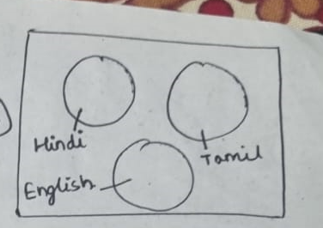 Hindi
Tamil
English